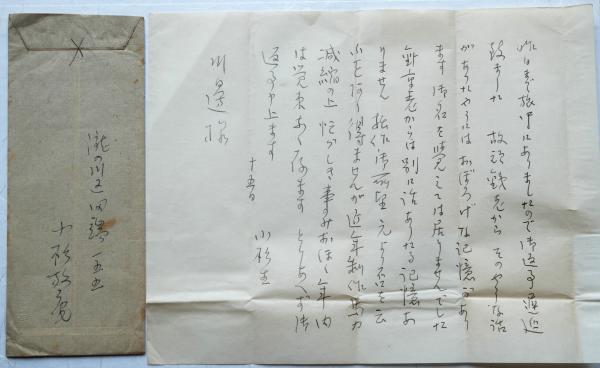 昨日まで旅中にありましたので御返事遷延
致ました 故 から そのやうな話
があつたやうにはおぼろげな記憶があり
ます 御名を覚えては居りませんでした
針重君からは別に話ありたる記憶あ
りません 拙作御所望 元より否を云
ふを得ませんが近年制作能力
減縮の上 忙がしき事のみおほく年内
は覚束なく存ます とりあへず御
返事申上ます
十五日 小杉生
川邊様
瀧の川区田端一五五
小杉放庵